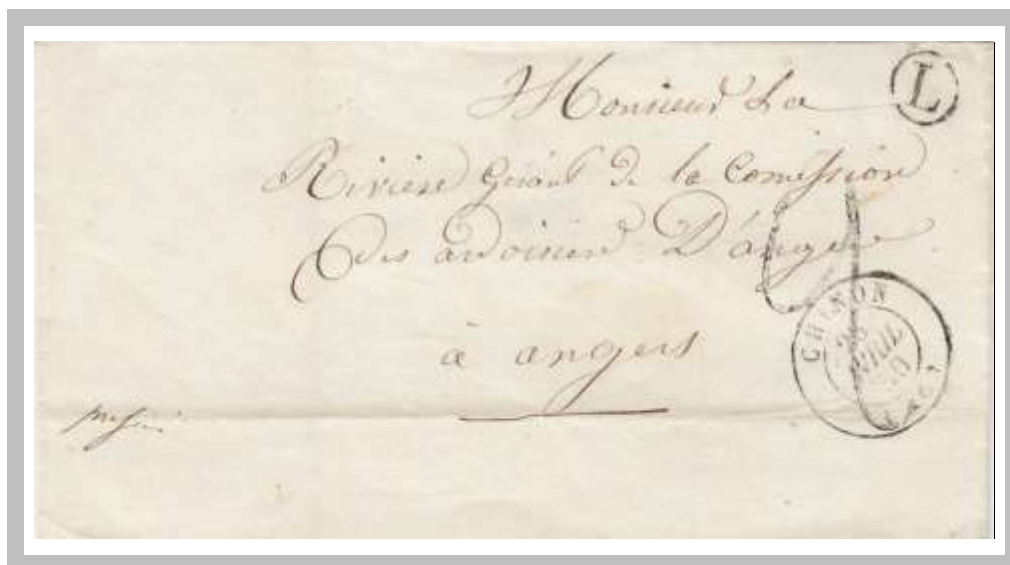 L
Monsieur La
Riviere Gérant de la Comission
des ardoisieres D'angers
à angers
CHINON
AVRIL